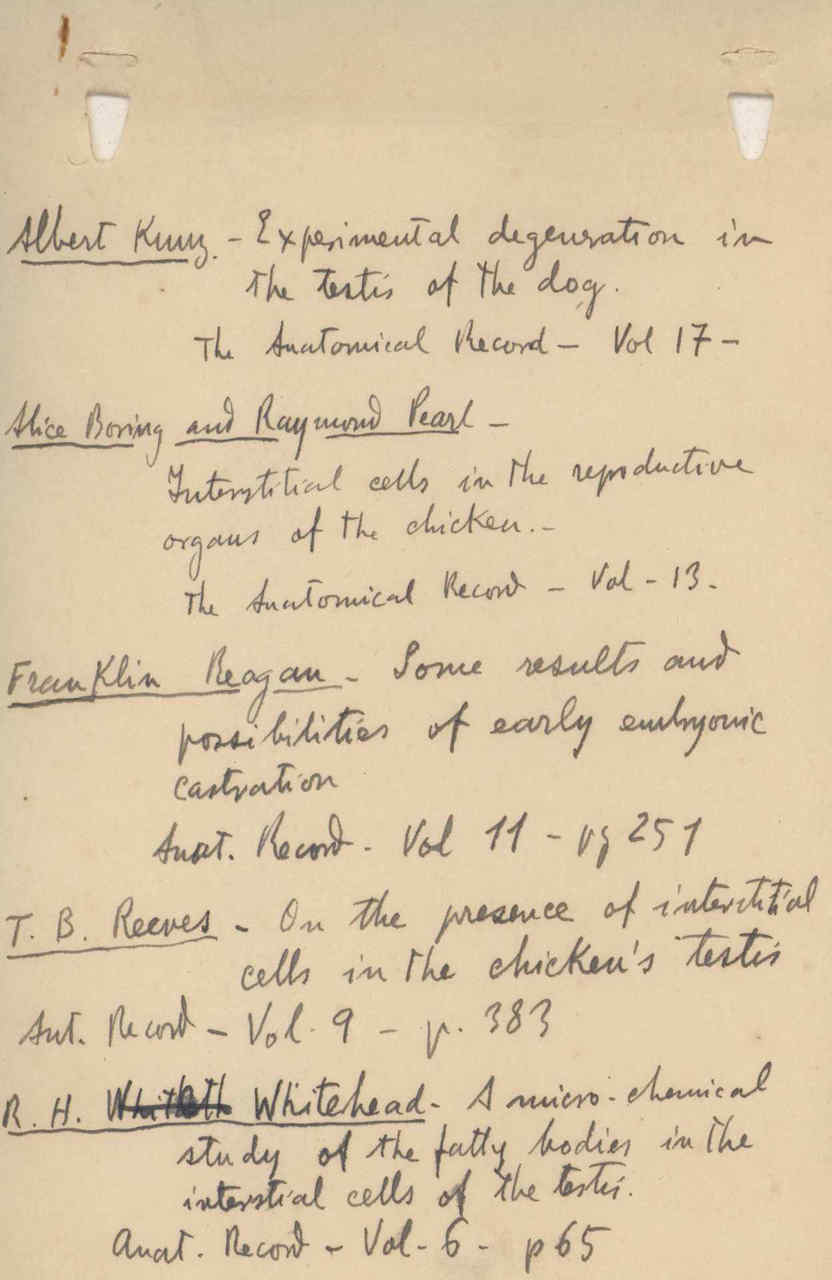 Albert Kunz. - Experimental degeneration in
the testis of the dog.
The Anatomical Record - Vol 17 -
Alice Boring and Raymond Pearl -
Interstitial cells in the reproductive
organs of the chicken. -
The Anatomical Record - Vol - 13 -
Franklin Reagan - Some results and
possibilities of early embryonic
castration
Anat. Record - Vol 11 - pg 251
T. B. Reeves - On the presence of interstitial
cells in the chicken's testis
Ant. Record - Vol. 9 - p. 383
R. H. Whitehead - A micro-chemical
study of the fatty bodies in the
interstial cells of the testis.
Anat. Record - Vol - 6 - p 65